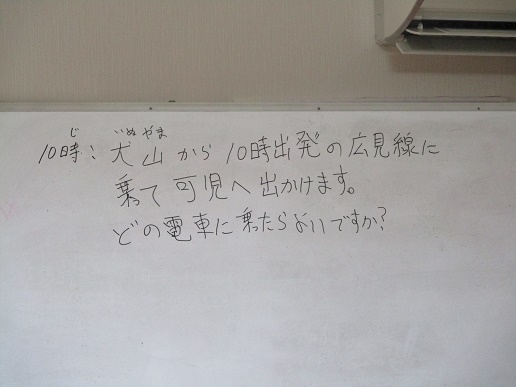 10時：犬山から10時出発の広見線に
乗って可児へ出かけます。
どの電車に乗ったらよいですか?
じ
いぬ やま